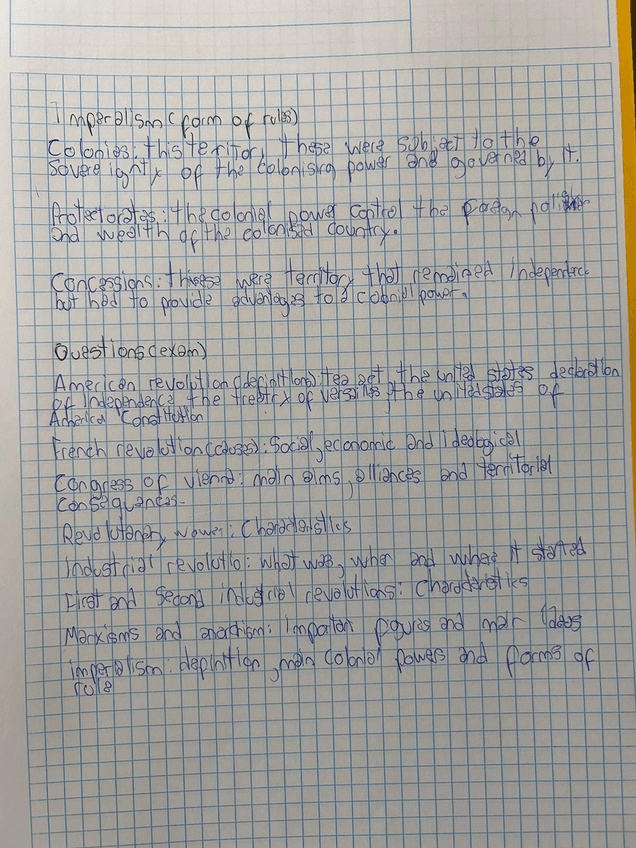 Imperalism (form of rules)
Colonies: this territory, these were subject to the
sovereignty of the colonising power and governed by it.
Protectorates: the colonial power control the foreign
and wealth of the colonised country.
Concessions: these were territory that remained independence
but had to provide advantages to a colonial power.
Questions (exam)
American revolution (definitions): tea act, the united states declaration
of Independence, the treatry of versailles, the united states of
America Constitution
French revolution (causes): Social, economic and ideological
Congress of vienna: main aims, alliances and territorial
consequences.
Revolutionary waves: Characteristics
Industrial revolutio: what was, when and where it started
First and Second industrial revolutions: Characteristics
Marxisms and anarchism: important figures and main ideas
imperialism: definition, main colonial powers and forms of
rule